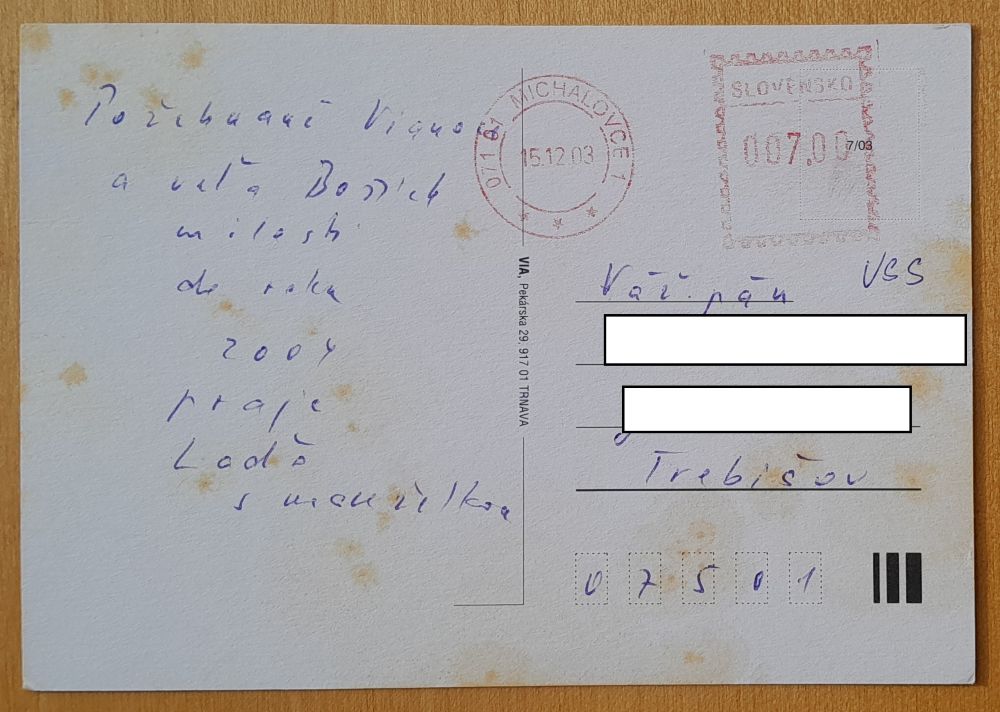 Požehnané Vianoce
a veľa Božích
milostí
do roku
2004
praje
Laďo
s manželkou
VIA, Pekárska 29, 917 01 TRNAVA
071 01 MICHALOVCE 1
15.12.03
SLOVENSKO
007,00
7/03
VSS
Váž. pán
Trebišov
07501